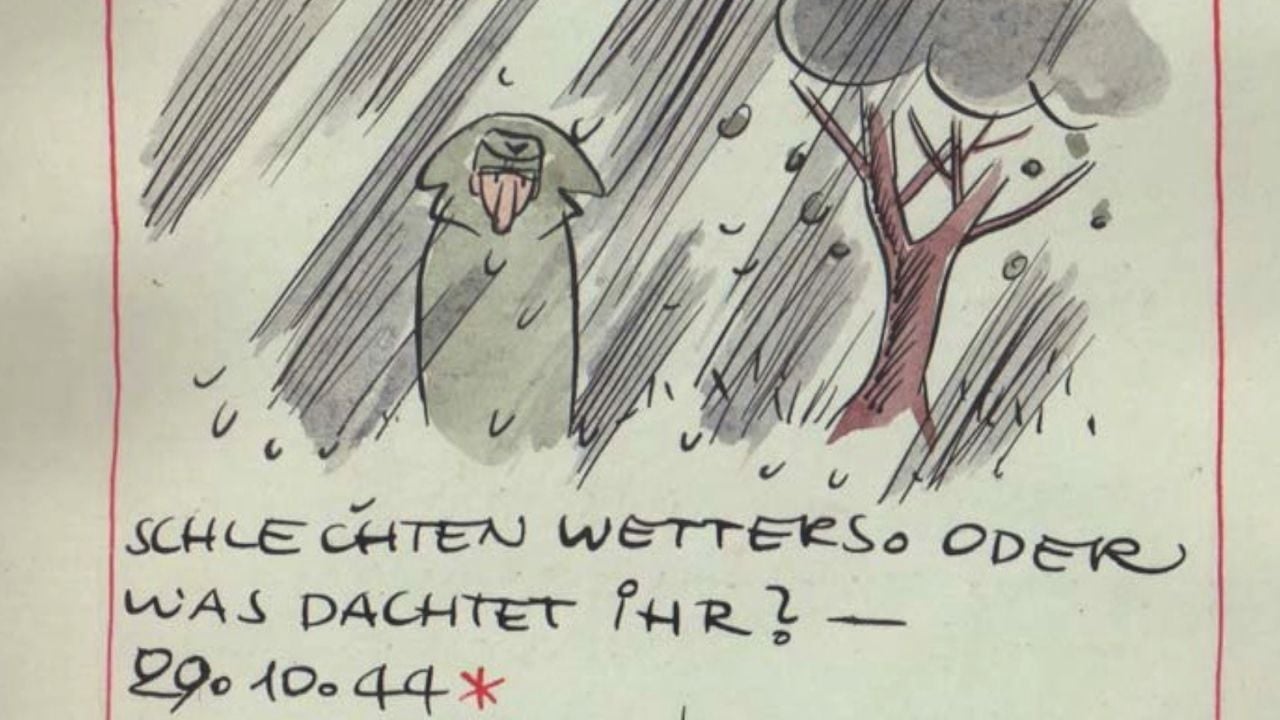 SCHLECHTEN WETTERS. ODER
WAS DACHTET IHR? —
29.10.44*